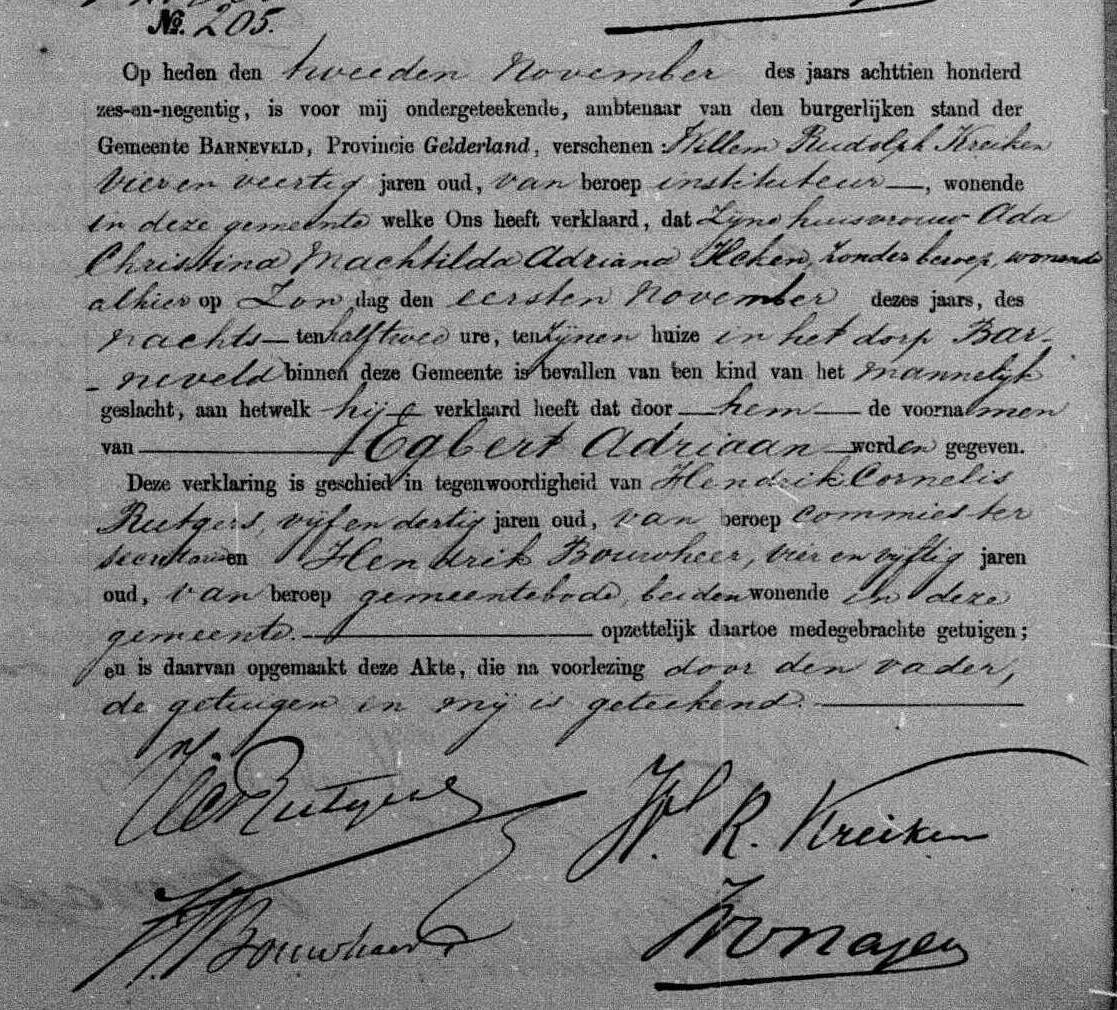 No. 205.
Op heden den tweeden November des jaars achttien honderd
zes-en-negentig, is voor mij ondergeteekende, ambtenaar van den burgerlijken stand der
Gemeente BARNEVELD, Provincie Gelderland, verschenen: Willem Rudolph Kreiken
vier en veertig jaren oud, van beroep instituteur —, wonende
in deze gemeente welke Ons heeft verklaard, dat Zyne huisvrouw Ada
Christina Machtilda Adriana Heken, zonder beroep, wonende
alhier op Zon dag den eersten November dezes jaars, des
nachts — ten half twee ure, ten zijnen huize in het dorp Bar-
- neveld binnen deze Gemeente is bevallen van een kind van het mannelijk
geslacht, aan hetwelk — hij — verklaard heeft dat door — hem — de voornamen
van — Egbert Adriaan — werden gegeven.
Deze verklaring is geschied in tegenwoordigheid van Hendrik Cornelis
Rutgers, vijf en dertig jaren oud, van beroep commies ter
secretarie en Hendrik Bouwheer, vier en vyftig jaren
oud, van beroep gemeentebode, beiden wonende in deze
gemeente. — opzettelijk daartoe medegebrachte getuigen;
en is daarvan opgemaakt deze Akte, die na voorlezing door den vader,
de getuigen en mij is geteekend. —
HC Rutgers
W. R. Kreiken
H. Bouwheer